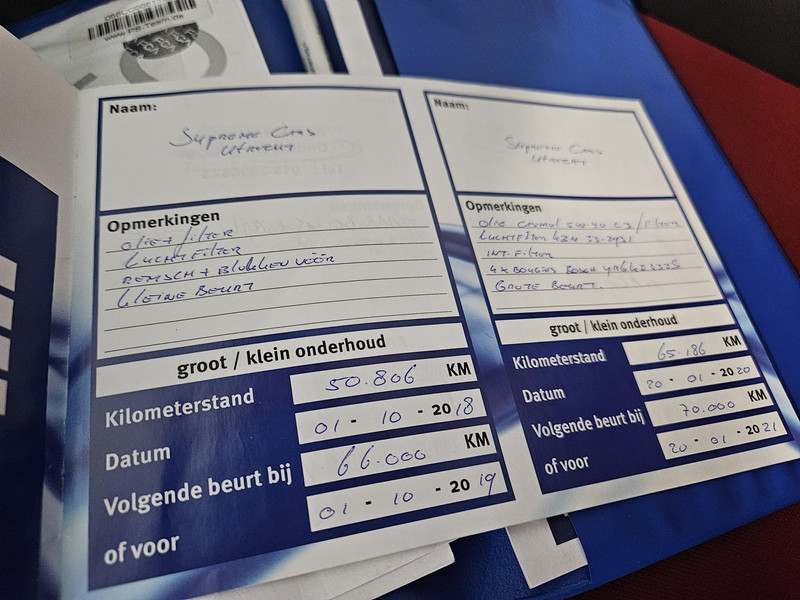 www.PB-Team.de
Naam:
Supreme Cars
Utrecht
Opmerkingen
olie + filter
Luchtfilter
Remsch + Blokken vóór
Kleine Beurt
groot / klein onderhoud
Kilometerstand 50.806 KM
Datum 01 - 10 - 2018
Volgende beurt bij 66.000 KM
of voor 01 - 10 - 2019
Naam:
Supreme Cars
Utrecht
Opmerkingen
olie Castrol 5W-40 C3 / Filter
Luchtfilter K&N
Int. Filter
4x Bougies Bosch
Grote Beurt.
groot / klein onderhoud
Kilometerstand 65.186 KM
Datum 20 - 01 - 2020
Volgende beurt bij 70.000 KM
of voor 20 - 01 - 2021